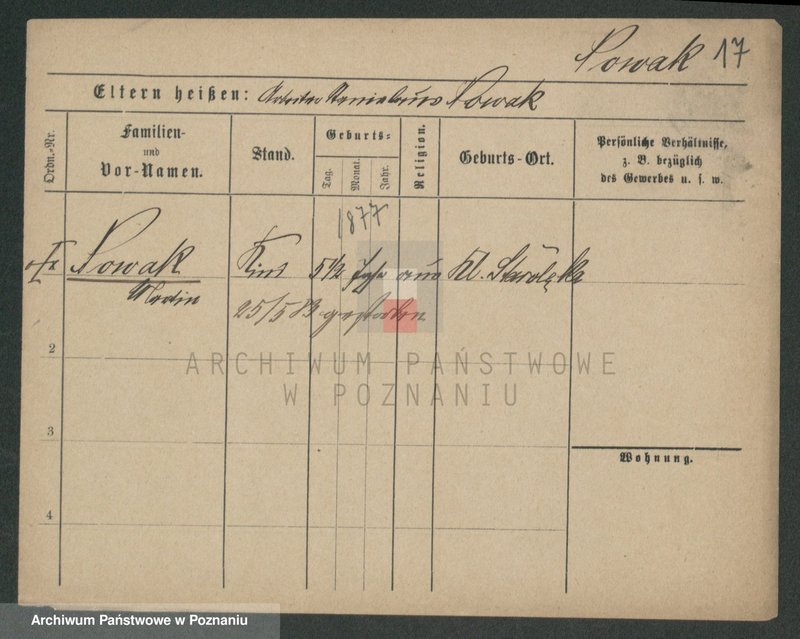 Nowak 17
Eltern heißen: Arbeiter Stanislaus Nowak
Ordn.-Nr.
Familien-
und
Vor-Namen.
Stand.
Geburts-
Tag.
Monat.
Jahr.
Religion.
Geburts-Ort.
Persönliche Verhältnisse,
z. B. bezüglich
des Gewerbes u. s. w.
1877
Nowak Kind 5 1/2 Jahr aus Kl. Starolęka
25/5 83 gestorben
2
ARCHIWUM PAŃSTWOWE
W POZNANIU
3
Wohnung.
4
Archiwum Państwowe w Poznaniu